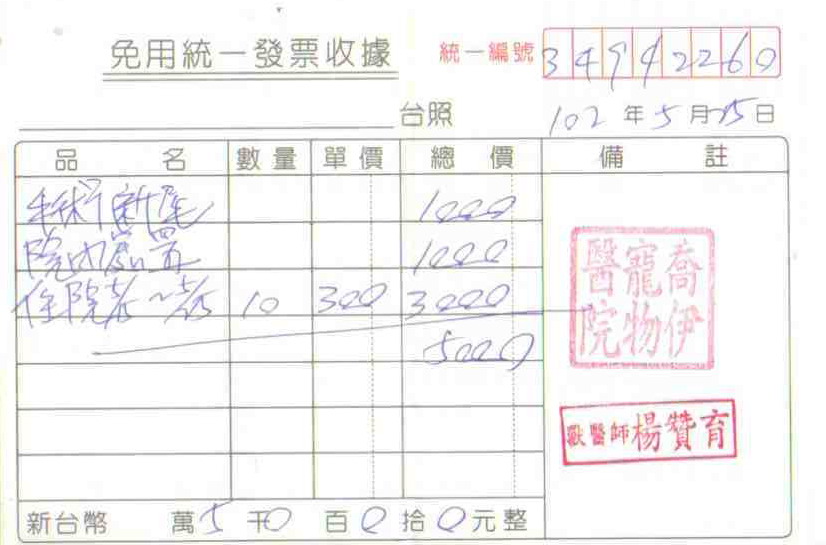 免用統一發票收據
統一編號 34942260
台照
102年5月25日
品名 數量 單價 總價 備註
手術斷尾 1000
院內處置 1000
住院 10 300 3000
5000
喬伊
寵物
醫院
獸醫師楊贊育
新台幣 萬5仟0百0拾0元整